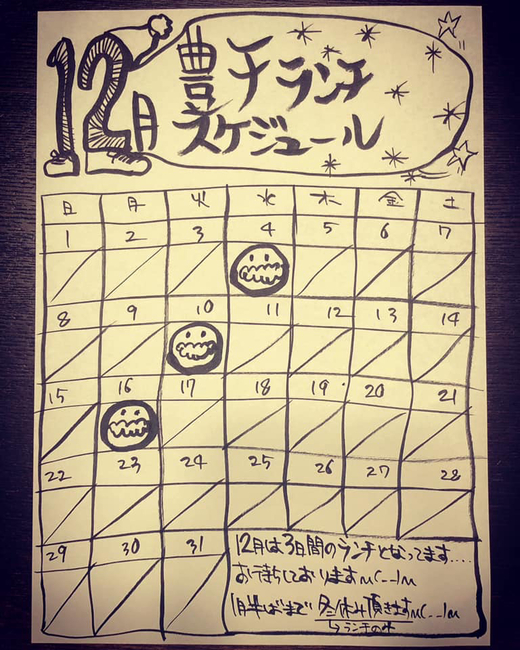 12月
豊チランチ
スケジュール
日 月 火 水 木 金 土
1 2 3 4 5 6 7
8 9 10 11 12 13 14
15 16 17 18 19 20 21
22 23 24 25 26 27 28
29 30 31
12月は3日間のランチとなってます....
お待ちしておりますm(_ _)m
1月半ばまで 冬休み頂きますm(_ _)m
↳ランチのみ